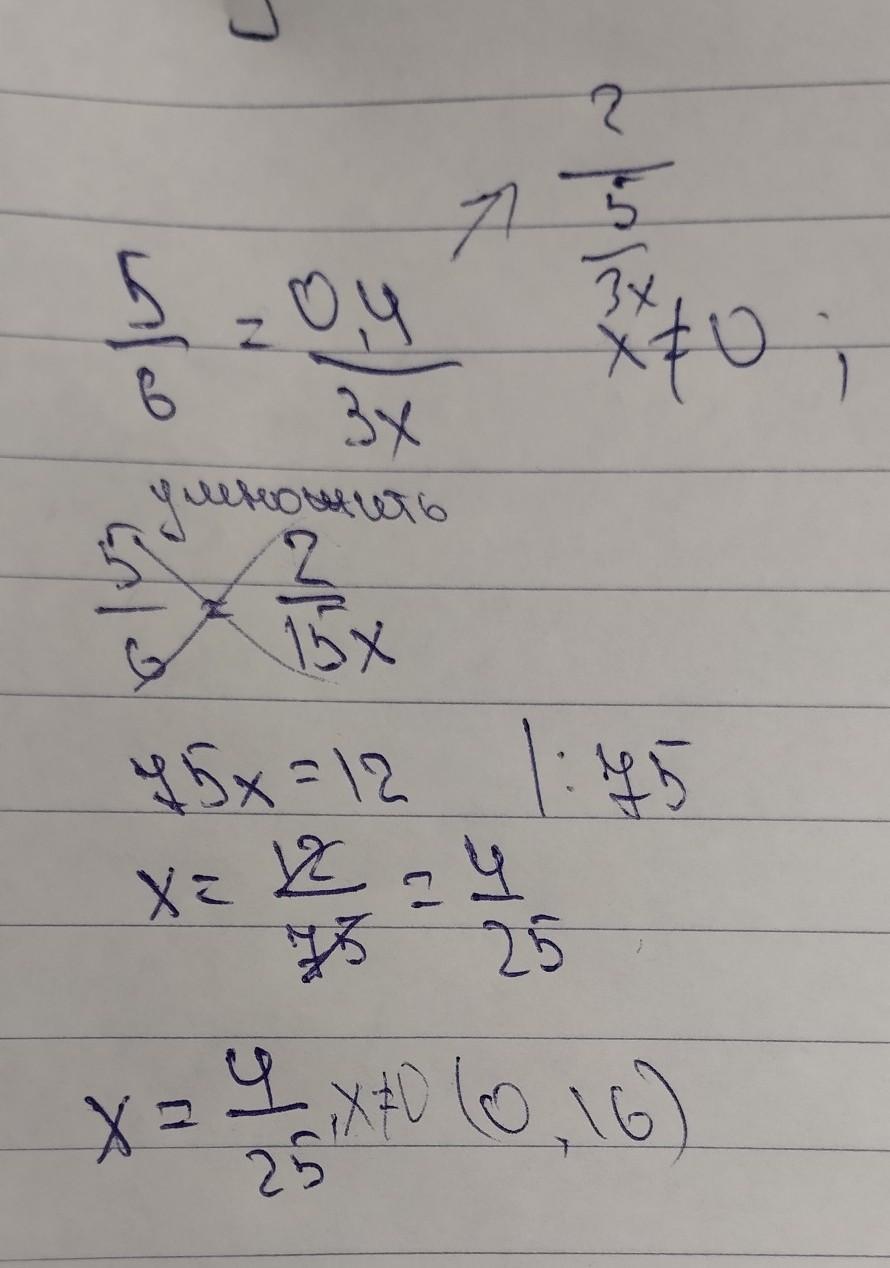 5/6 = 0,4/3x ↗ 2/(5/3x) x ≠ 0 ;
умножить
5/6 = 2/15x
75x = 12 |: 75
x = 12/75 = 4/25
x = 4/25, x≠0 (0,16)